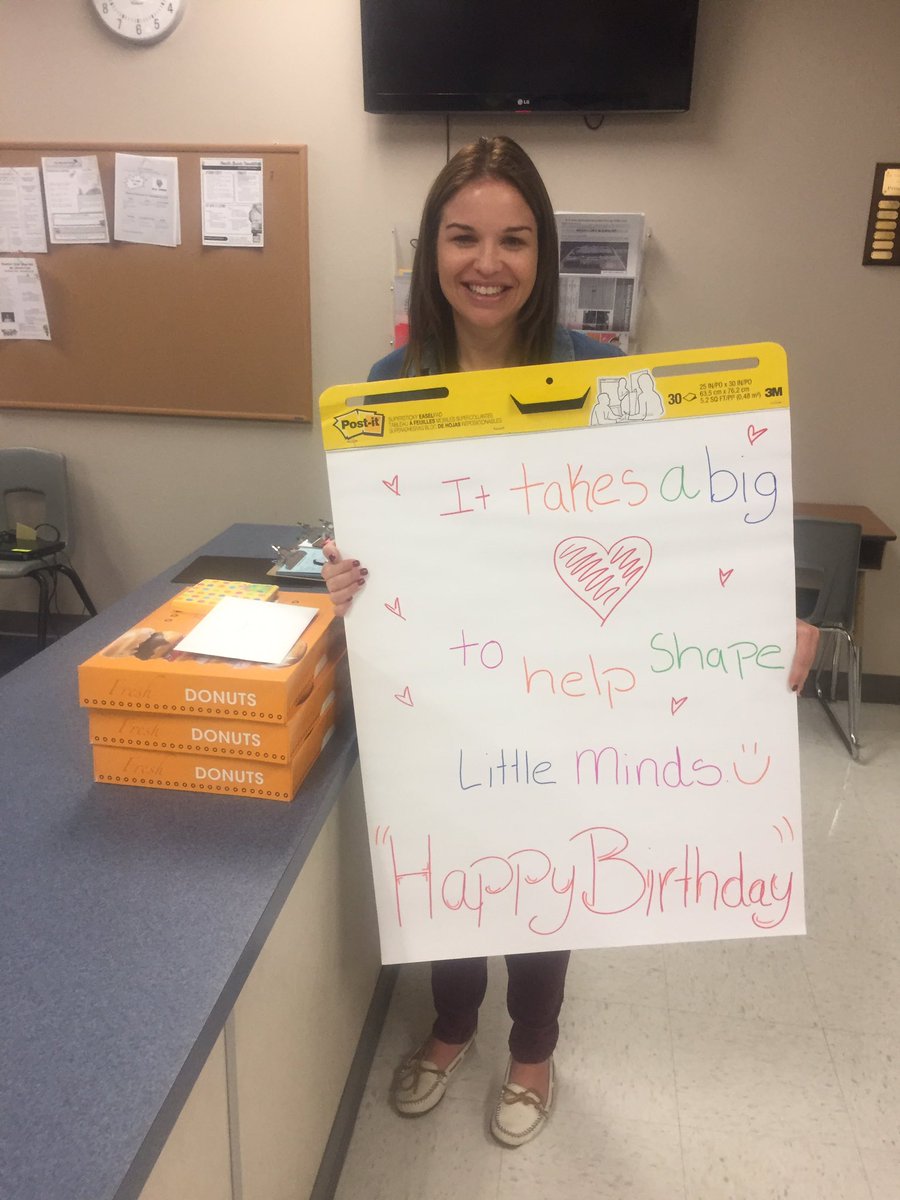 8 7 6 5 4
LG
Post-it
SUPERSTICKY EASEL PAD
TABLEAU À FEUILLES MOBILES SUPERCOLLANTES
SUPERADHESIVAS BLOC DE HOJAS REPOSICIONABLES
30
25 IN/PO x 30 IN/PO
63,5 cm x 76,2 cm
5.2 SQ FT/PI² (0,48 m²)
3M
It takes a big
to help shape
Little minds.
"Happy Birthday"
Fresh DONUTS
Fresh DONUTS
Fresh DONUTS